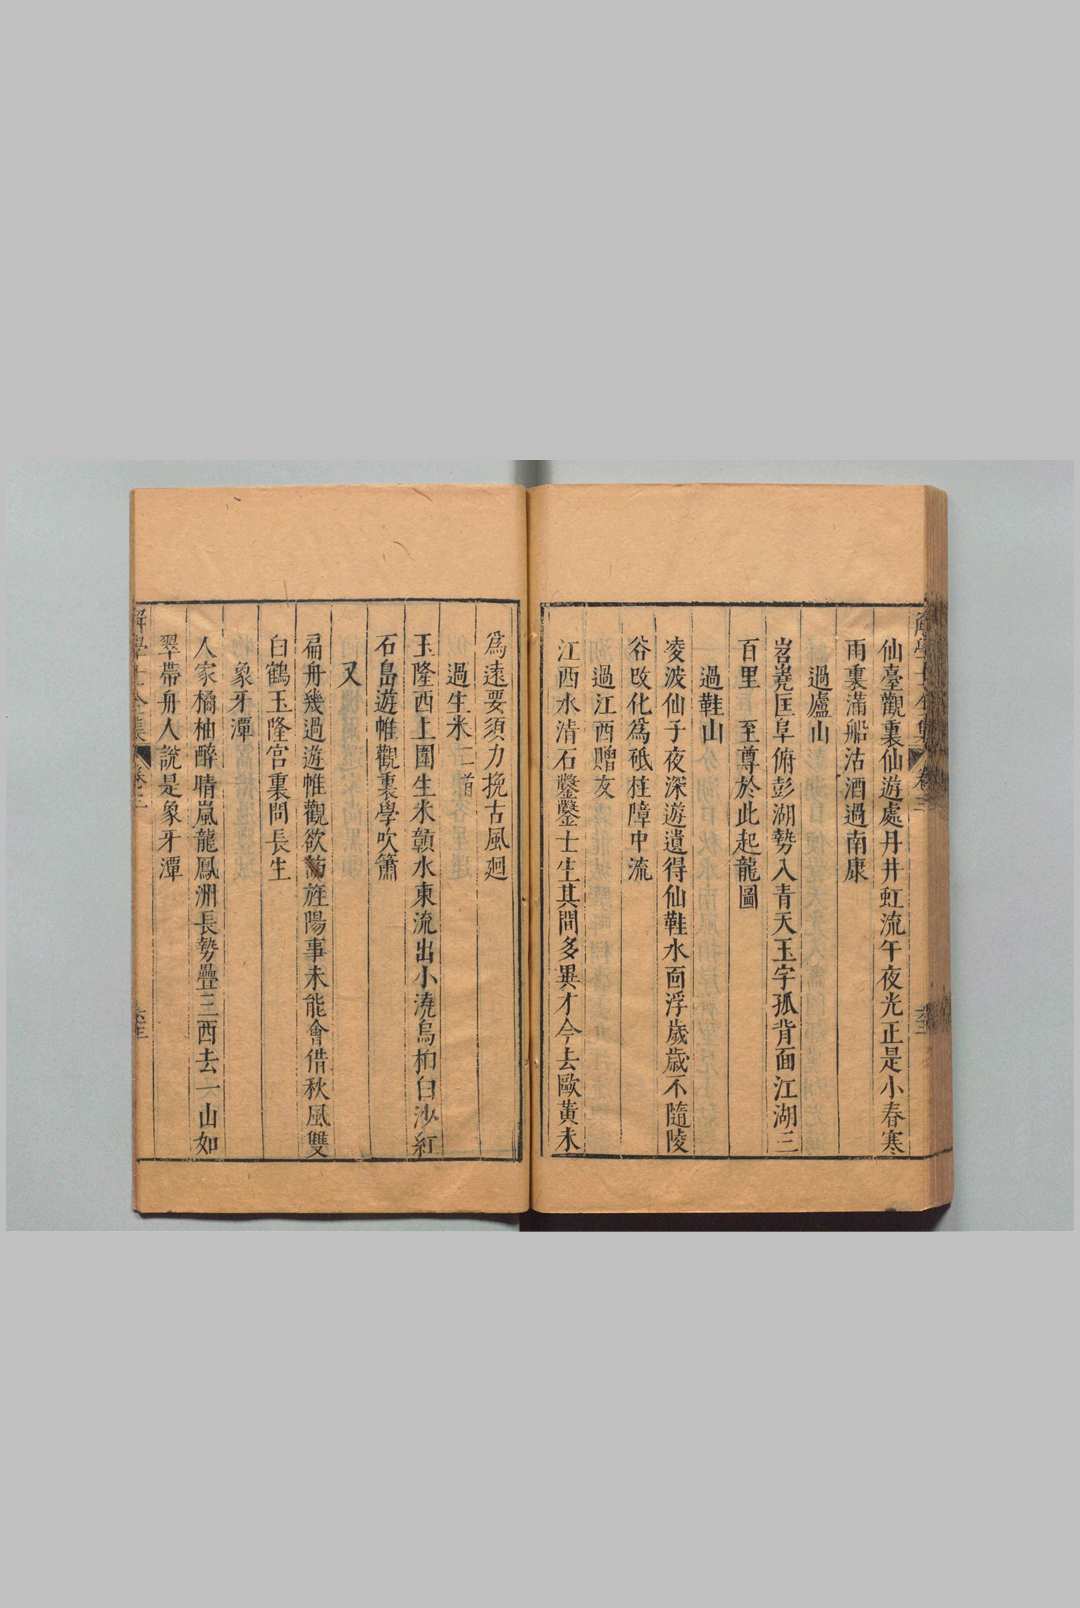 仙臺觀裏仙遊處丹井虹流午夜光正是小春寒
雨裏滿船沽酒過南康
過廬山
岧嶤匡阜俯彭湖勢入青天玉宇孤背面江湖三
百里 至尊於此起龍圖
過鞋山
凌波仙子夜深遊遺得仙鞋水面浮歲歲不隨陵
谷改化爲砥柱障中流
過江西贈友
江西水清石鑿鑿士生其間多異才今去歐黃未
爲遠要須力挽古風廻
過生米二首
玉隆西上圍生米贑水東流出小澆烏桕白沙紅
石島遊帷觀裏學吹簫
又
扁舟幾過遊帷觀欲訪旌陽事未能會借秋風雙
白鶴玉隆宫裏問長生
象牙潭
人家橘柚醉晴嵐龍鳳洲長勢疊三西去一山如
翠帶舟人說是象牙潭
解學士全集
卷二